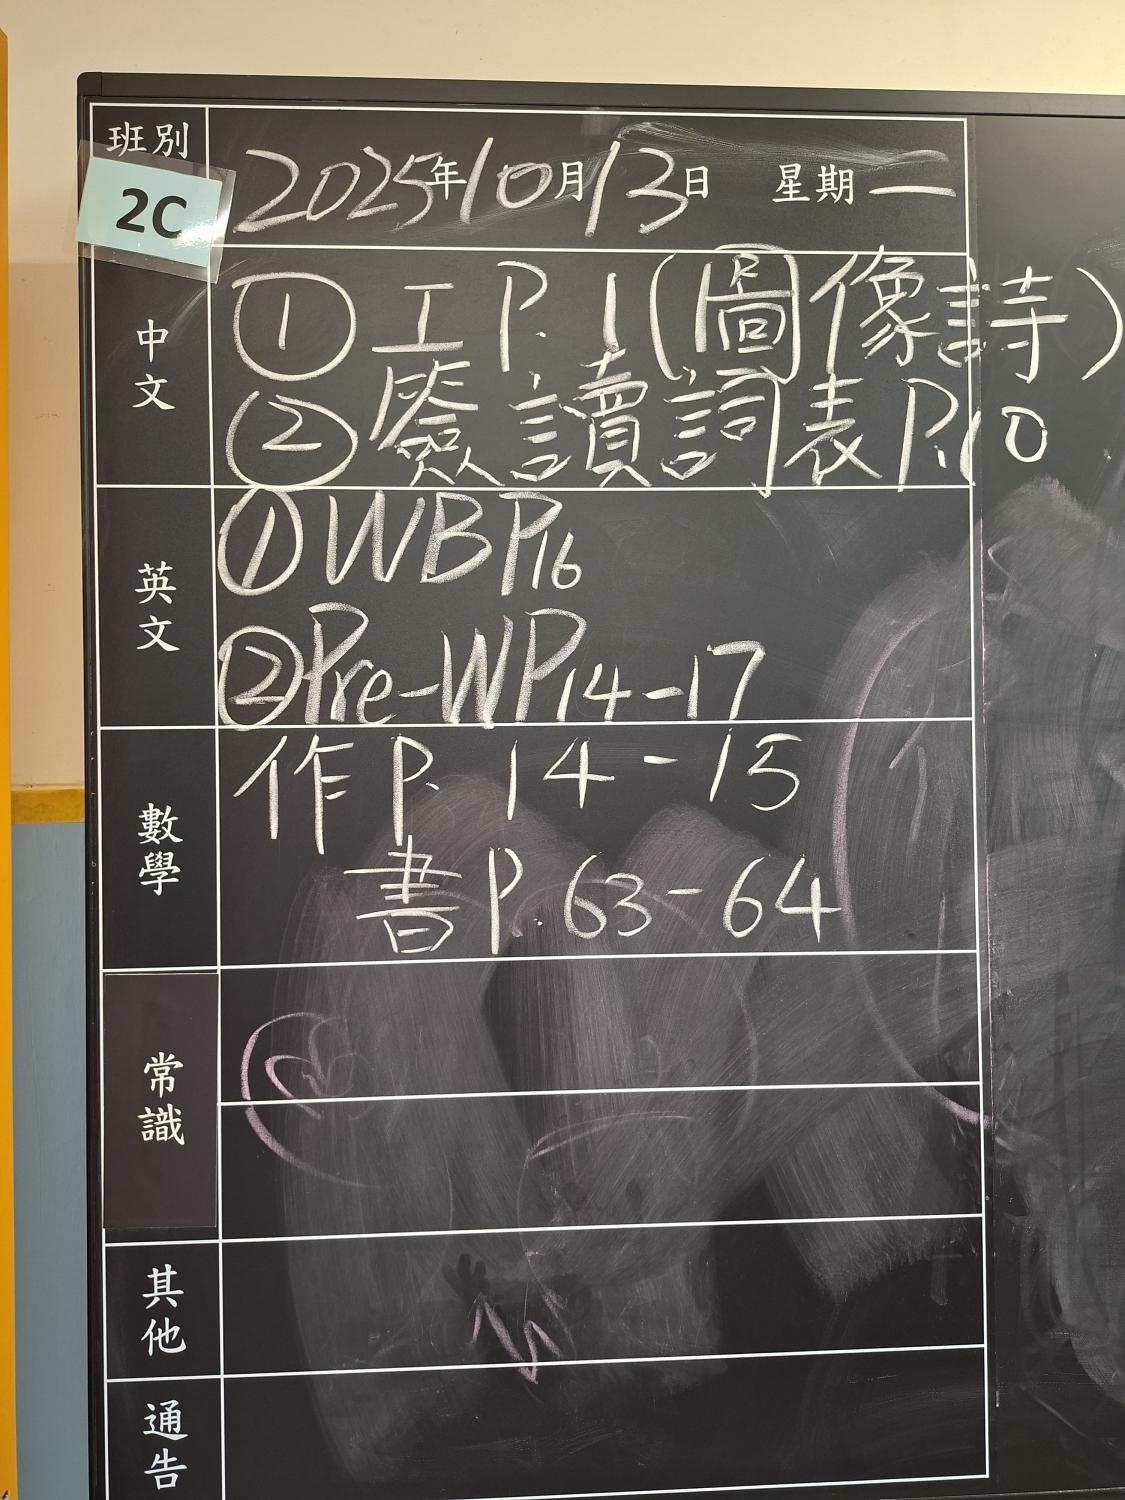 班別
2C
2025年10月13日 星期一
中文
① 工 P.1(圖像詩)
② 簽讀詞表 P.10
英文
① WB P16
② Pre-WP14-17
數學
作 P. 14-15
書 P. 63-64
常識
其他
通告